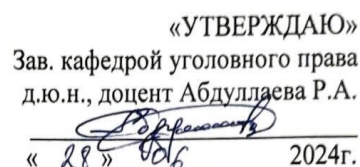 «УТВЕРЖДАЮ»
Зав. кафедрой уголовного права
д.ю.н., доцент Абдуллаева Р.А.
« 28 » 06 2024г.